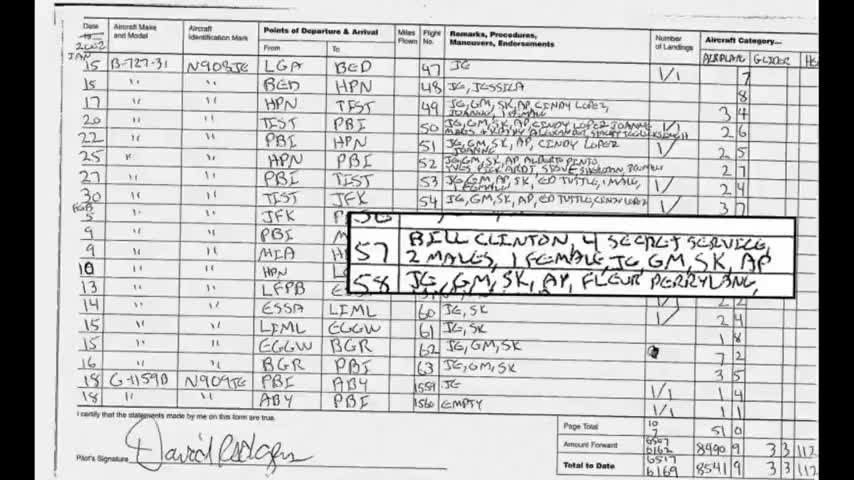 Date Aircraft Make and Model Aircraft Identification Mark Points of Departure & Arrival Miles Flown Flight No. Remarks, Procedures, Maneuvers, Endorsements Number of Landings Aircraft Category...
2002 From To AIRPLANE GLIDER
JAN
15 B-727-31 N908JE LGA BED 47 JE 1/1 7
15 " " BED HPN 48 JE, JESSICA 8
17 " " HPN TIST 49 JE, GM, SK, AP, CINDY LOPEZ, 3 4
20 " " TIST PBI 50 JE, GM, SK, AP, CINDY LOPEZ 1/ 2 6
22 " " PBI HPN 51 JE, GM, SK, AP, CINDY LOPEZ 1/ 2 5
25 " HPN PBI 52 JE, GM, SK, AP, ALBERTO PINTO 2 7
27 " " PBI TIST 53 JE, GM, AP, SK, ED TUTTLE, 1 MALE, 1/ 2 4
1 FEMALE
30 " " TIST JFK 54 JE, GM, SK, AP, ED TUTTLE, CINDY LOPEZ 1/ 3 7
FEB
5 " " JFK P
9 " " PBI M
9 " " MIA H
10 " " HPN L
13 " " LFPB E
57 BILL CLINTON, 4 SECRET SERVICE,
2 MALES, 1 FEMALE, JE, GM, SK, AP
58 JE, GM, SK, AP, FLEUR PERRYLANG,
14 " " ESSA LIML 60 JE, SK 1/ 2 4
15 " " LIML EGGW 61 JE, SK 1 8
15 " " EGGW BGR 62 JE, GM, SK 7 2
16 " " BGR PBI 63 JE, GM, SK 3 5
18 G-1159B N909JE PBI ABY 1559 JE 1/1 1 4
18 " " ABY PBI 1560 EMPTY 1/1 1 1
I certify that the statements made by me on this form are true.
Page Total 51 0
Amount Forward 6162 8490 9 3 3 112
Total to Date 6169 8541 9 3 3 112
Pilot's Signature David Rodgers